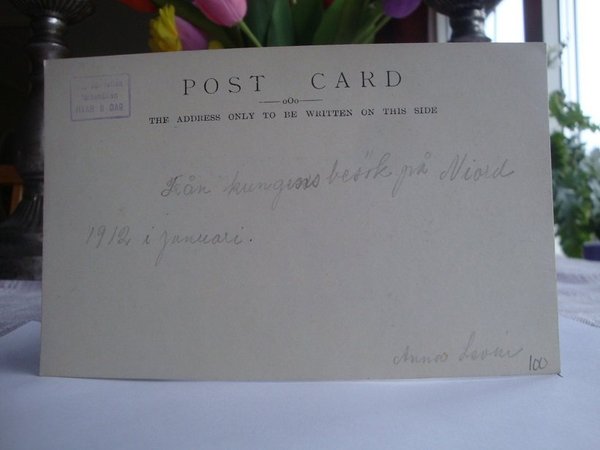 POST CARD
oOo
THE ADDRESS ONLY TO BE WRITTEN ON THIS SIDE
Från kungens besök på Niord
1912 i januari.
100